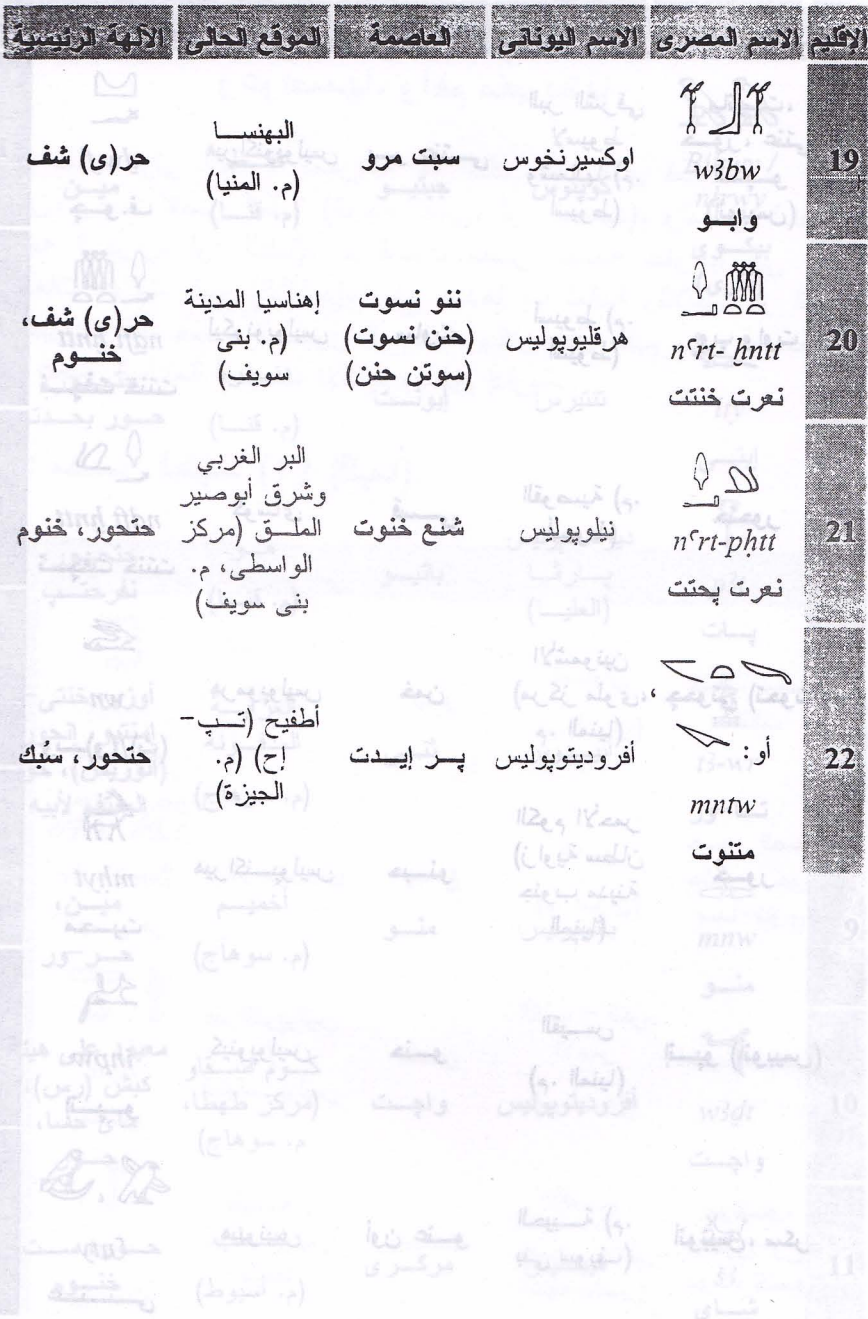 الإقليم الاسم المصرى الاسم اليونانى العاصمة الموقع الحالى الآلهة الرئيسية
19
w3bw
وابــو
اوكسيرنخوس
سبت مرو
البهنســا
(م. المنيا)
حر(ى) شف
20
nꜥrt- ḫntt
نعرت خنتت
هرقليوپوليس
ننو نسوت
(حنن نسوت)
(سوتن حنن)
إهناسيا المدينة
(م. بنى
سويف)
حر(ى) شف،
خنــوم
21
nꜥrt-pḥtt
نعرت پحتت
نيلوپوليس
شنع خنوت
البر الغربي
وشرق أبوصير
الملــق (مركز
الواسطى، م.
بنى سويف)
حتحور، خنوم
22
،
أو:
mntw
متنوت
أفروديتوپوليس
پــر إيــدت
أطفيح (تــپ-
إح) (م.
الجيزة)
حتحور، سُبك